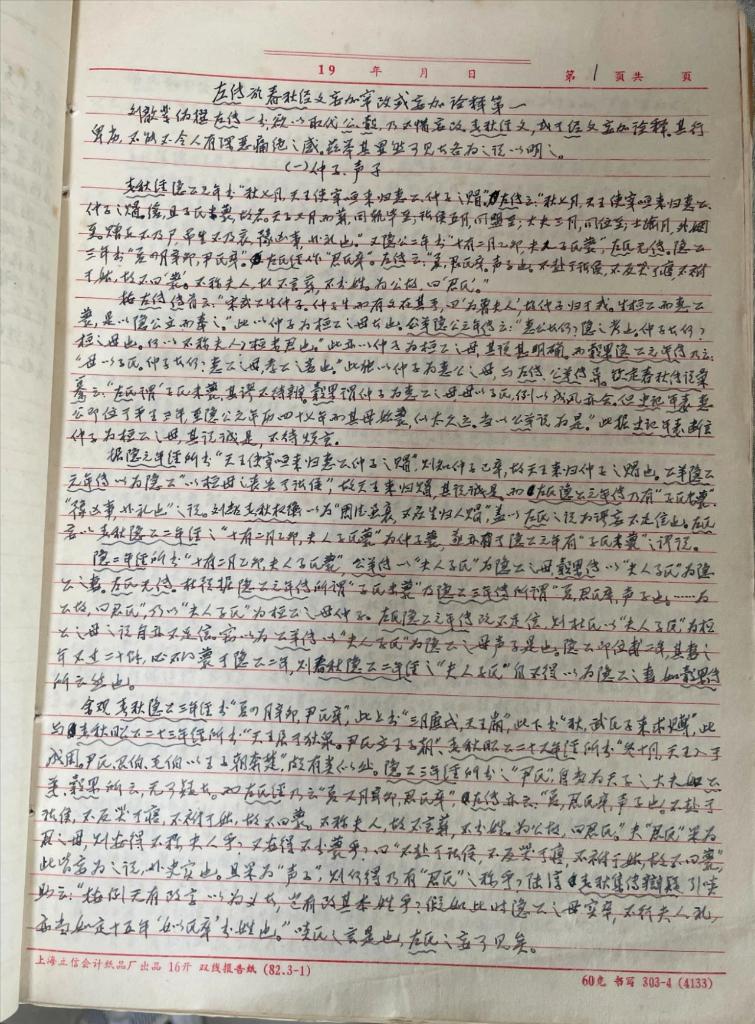 19 年 月 日 第 1 页共 页
左传于春秋经文妄加窜改或妄加诠释第一
刘歆等伪撰左传一书，欲以取代公、穀，乃不惜窜改春秋经文，或于经文妄加诠释，其行
卑劣，不能不令人有深恶痛绝之感，兹举其昭然可见者各为之说以明之。
(一)仲子、声子
春秋经隐公元年书“秋七月，天王使宰咺来归惠公、仲子之赗。”左传云：“秋七月，天王使宰咺来归惠公、
仲子之赗。缓，且子氏未薨，故名。天子七月而葬，同轨毕至；诸侯五月，同盟至；大夫三月，同位至；士踰月，外姻
至。赠死不及尸，吊生不及哀，豫凶事，非礼也。”又隐公二年书“十有二月乙卯，夫人子氏薨”，左氏无传。隐公
三年书“夏四月辛卯，尹氏卒。”左氏经作“君氏卒。”左传云：“夏，君氏卒。声子也。不赴于诸侯，不反哭于寝，不祔
于姑，故不曰‘薨’。不称夫人，故不言葬，不书姓。为公故，曰‘君氏’。”
按左传传首云：“宋武公生仲子。仲子生而有文在其手，曰‘为鲁夫人’，故仲子归于我。生桓公而惠公
薨，是以隐公立而奉之。”此以仲子为桓公之母者也。公羊隐公元年传云：“惠公者何？隐之考也。仲子者何？
桓之母也。何以不称夫人？桓未君也。”此亦以仲子为桓公之母，其说甚明确。而穀梁隐公元年传乃云：
“母以子氏，仲子者何？惠公之母，孝公之妾也。”此独以仲子为惠公之母，与左传、公羊传异。
公即位于平王三年，至隐公元年历四十七年而其母始薨，似太久远，当以公羊说为是。”此据史记年表断言
仲子为桓公之母，其说诚是，不待烦言。
据隐元年经所书“天王使宰咺来归惠公仲子之赗”，则知仲子已卒，故天王来归仲子之赗也。公羊隐公
元年传以为隐公“以桓母之丧告于诸侯”，故天王来归赗，其说诚是。而左氏隐公元年传乃有“子氏未薨”
“豫凶事，非礼也”之说。刘敞春秋权衡以为“周德虽衰，不应生归人赗”，盖以左氏之说为谬妄不足信也。左氏
妄以春秋隐公二年经之“十有二月乙卯，夫人子氏薨”为仲子薨，遂亦有于隐公元年有“子氏未薨”之谬说。
隐二年经所书“十有二月乙卯，夫人子氏薨”，公羊传以“夫人子氏”为隐公之母，穀梁传以“夫人子氏”为隐
公之妻。左氏无传。杜注据隐公元年传所谓“子氏未薨”及隐公三年传所谓“夏，君氏卒，声子也。……为
公故，曰君氏”，乃以“夫人子氏”为桓公之母仲子。左氏隐公元年传既不足信，则杜氏以“夫人子氏”为桓
公之母之说自亦不足信。窃以为公羊传以“夫人子氏”为隐公之母声子是也。隐公即位甫二年，其妻之
年不过二十馀，必不得薨于隐公二年，则春秋隐公二年经之“夫人子氏”自不得以为隐公之妻如穀梁传
所云然也。
今观春秋隐公三年经书“夏四月辛卯，尹氏卒”，此上书“三月庚戌，天王崩”，此下书“秋，武氏子来求赙”，此
与春秋昭公二十三年经所书“天王居于狄泉。尹氏立王子朝”、春秋昭公二十六年经所书“冬十月，天王入于
成周。尹氏、召伯、毛伯以王子朝奔楚”，颇有类似处。隐公三年经所书之“尹氏”自当为天子之大夫如公
羊、穀梁所云，无可疑者。而左氏经乃云“夏四月辛卯，君氏卒”，左传亦云：“夏，君氏卒，声子也。不赴于
诸侯，不反哭于寝，不祔于姑，故不曰薨。不称夫人，故不言葬，不书姓。为公故，曰君氏。”夫“君氏”果为
君之母，则安得不称夫人乎？又安得不书薨乎？曰“不赴于诸侯，不反哭于寝，不祔于姑，故不曰薨”，
此皆妄为之说，非史实也。且果为“声子”，则何得乃有“君氏”之称乎？陆淳春秋集传辩疑引啖
助云：“按例无有改言以为义者，岂有改其本姓乎？假如此时隐公之母实卒，不行夫人礼，
亦当如定十五年‘姒氏卒’书姓也。”啖氏之言是也，左氏之妄可见矣。
上海立信会计纸品厂出品 16开 双线报告纸 (82.3-1)
60克 书写 303-4 (4133)